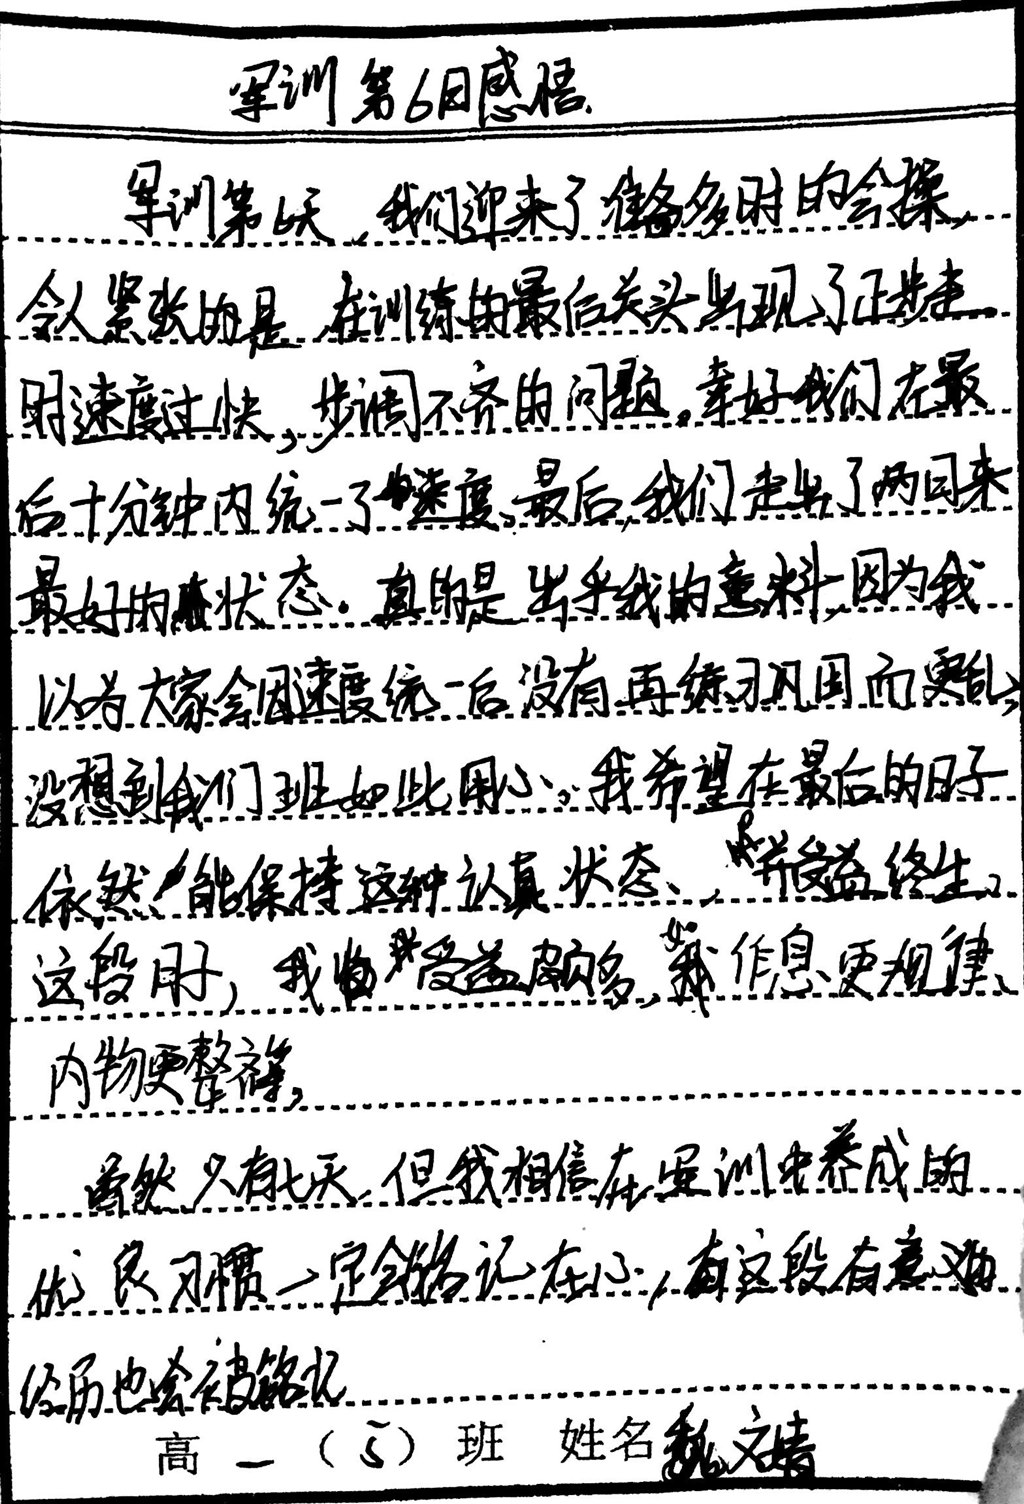 军训第6日感悟
军训第6天,我们迎来了准备多时的会操,
令人紧张的是,在训练的最后关头出现了正步走
时速度过快,步调不齐的问题。幸好我们在最
后十分钟内统一了速度。最后,我们走出了两日来
最好的状态。真的是出乎我的意料,因为我
以为大家会因速度统一后没有再练习巩固而更乱,
没想到我们班如此用心。我希望在最后的日子
依然能保持这种认真状态,并受益终生。
这段日子,我受益颇多,如作息更规律、
内物更整齐等。
虽然只有七天,但我相信在军训中养成的
优良习惯一定会铭记在心,而这段有意义的
经历也会被铭记
高一(5)班 姓名魏文婧